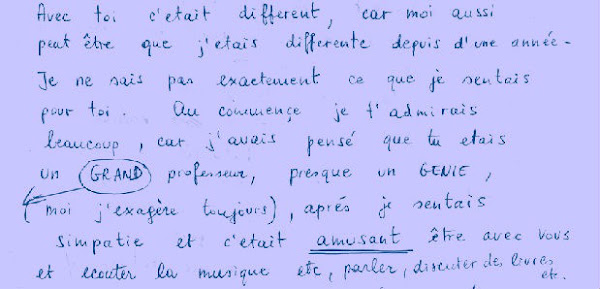 Avec toi c'etait different, car moi aussi
peut être que j'etais differente depuis d'une année-
Je ne sais pas exactement ce que je sentais
pour toi. Au commençe je t'admirais
beaucoup, car j'avais pensé que tu etais
un GRAND professeur, presque un GENIE,
(moi j'exagère toujours), après je sentais
simpatie et c'etait amusant être avec vous
et ecouter la musique etc, parler, discuter des livres
etc.